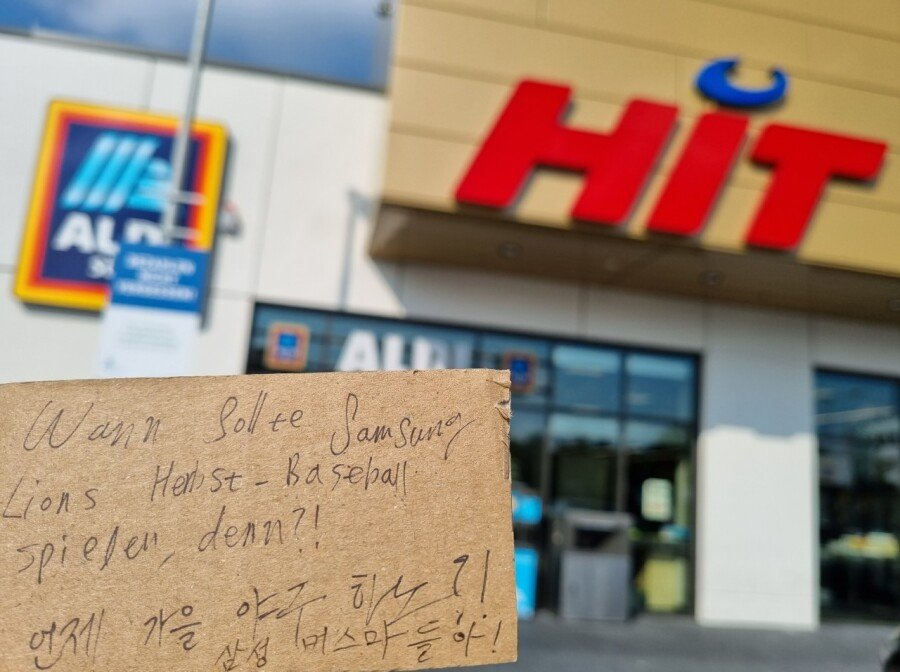 HiT
ALDI
ALDI
Wann Sollte Samsung
Lions Herbst-Baseball
spielen, denn?!
언제 가을 야구 하노?!
삼성 머스마들아!